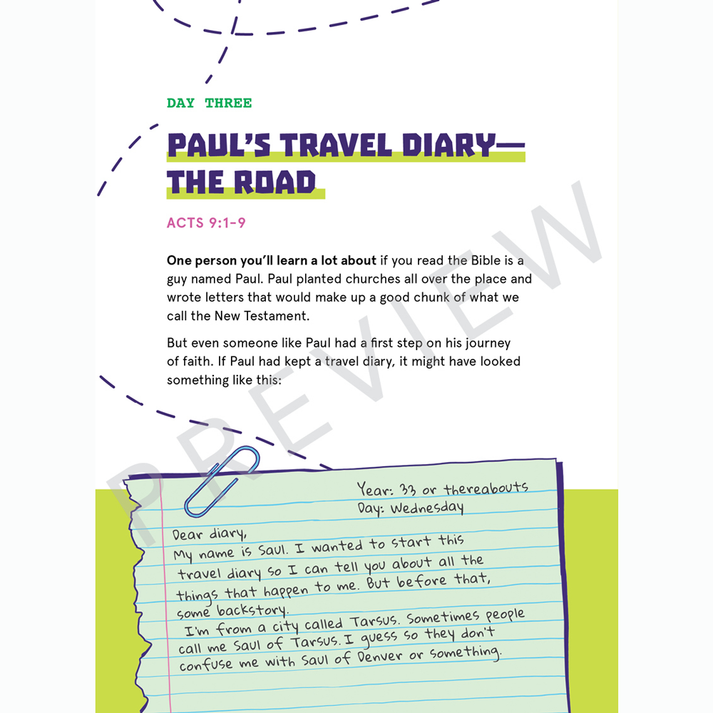 DAY THREE
PAUL'S TRAVEL DIARY—
THE ROAD
ACTS 9:1-9
One person you'll learn a lot about if you read the Bible is a
guy named Paul. Paul planted churches all over the place and
wrote letters that would make up a good chunk of what we
call the New Testament.
But even someone like Paul had a first step on his journey
of faith. If Paul had kept a travel diary, it might have looked
something like this:
PREVIEW
Year: 33 or thereabouts
Day: Wednesday
Dear diary,
My name is Saul. I wanted to start this
travel diary so I can tell you about all the
things that happen to me. But before that,
some backstory.
I'm from a city called Tarsus. Sometimes people
call me Saul of Tarsus. I guess so they don't
confuse me with Saul of Denver or something.